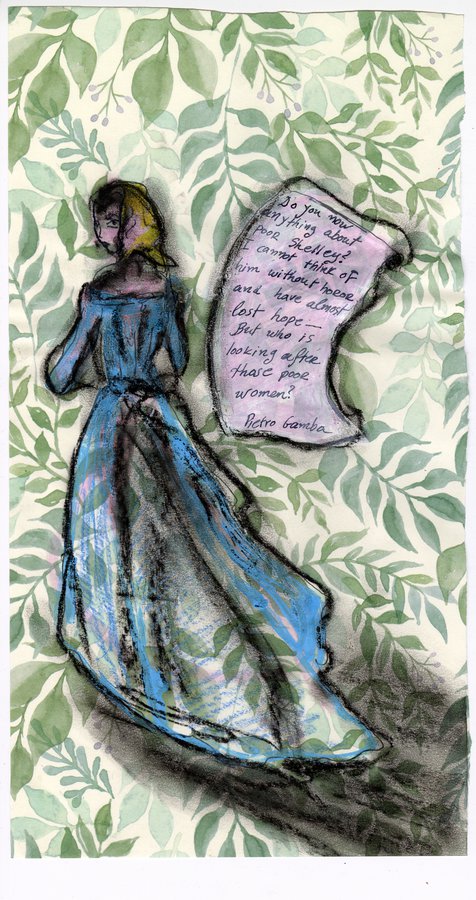 Do you now
anything about
poor Shelley?
I cannot think of
him without horor
and have almost
lost hope—
But who is
looking after
those poor
women?
Pietro Gamba